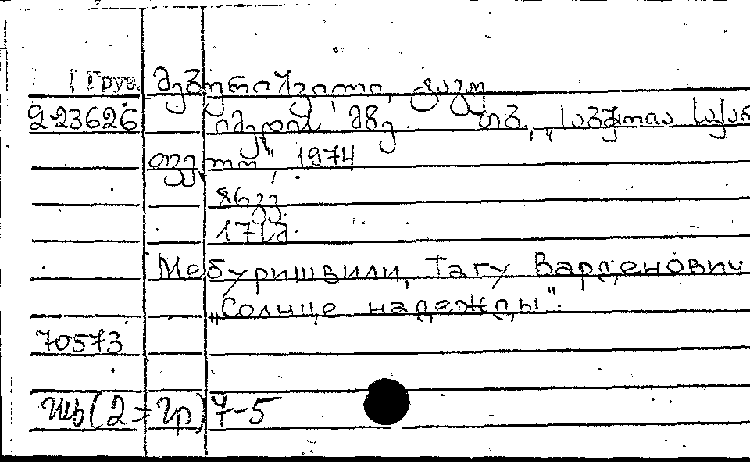 Груз. მებურიშვილი, ტაგუ
2-23626 იმედის მზე. თბ., „საბჭოთა საქარ
თველო“, 1974
86 გვ.
Мебуришвили, ТагуВарденович
„Солнце надежды“.
70573
Шб(2=Гр)7-5